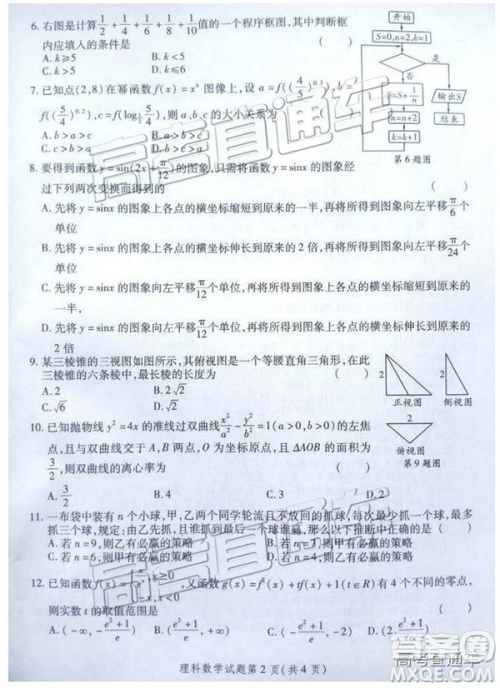 6. 右图是计算1/2+1/4+1/6+1/8+1/10值的一个程序框图,其中判断框
内应填入的条件是 ( )
A. k≥5 B. k<5
C. k>5 D. k≤6
开始
S=0,n=2,k=1
否
是
S=S+1/n
输出S
n=n+2
k=k+1
结束
第6题图
7. 已知点(2,8)在幂函数 f(x)=xⁿ 图像上,设 a=f((4/5)^0.2),b=
f((5/4)^0.2),c=f(log 5/4),则 a,b,c 的大小关系为 ( )
A. b>a>c
C. c>b>a D. b>c>a
8. 要得到函数 y=sin(2x+π/12)的图象,只需将函数 y=sinx 的图象经
过下列两次变换而得到的 ( )
A. 先将 y=sinx 的图象上各点的横坐标缩短到原来的一半,再将所得到图象向左平移π/6个
单位
B. 先将 y=sinx 的图象上各点的横坐标伸长到原来的 2 倍,再将所得到图象向左平移π/24个
单位
C. 先将 y=sinx 的图象向左平移π/12个单位,再将所得到的图象上各点的横坐标缩短到原来的
一半,
D. 先将 y=sinx 的图象向左平移π/12个单位,再将所得到的图象上各点的横坐标伸长到原来的
2 倍
9. 某三棱锥的三视图如图所示,其俯视图是一个等腰直角三角形,在此
三棱锥的六条棱中,最长棱的长度为 ( )
A. 2 B. 2√2
C. √6 D. 2√3
正视图 左视图
俯视图
第9题图
10. 已知抛物线 y²=4x 的准线过双曲线x²/a²-y²/b²=1(a>0,b>0)的左焦
点,且与双曲线交于 A,B 两点,O 为坐标原点,且 △AOB 的面积为
3/2,则双曲线的离心率为 ( )
A. 3/2 D. 2
11. 一布袋中装有 n 个小球,甲,乙两个同学轮流且不放回的抓球,每次最少抓一个球,最多
抓三个球,规定:由乙先抓,且谁抓到最后一个球谁赢,那么以下推断中正确的是 ( )
A. 若 n=9,则乙有必赢的策略 B. 若 n=7,则甲有必赢的策略
C. 若 n=6,则甲有必赢的策略 D. 若 n=4,则甲有必赢的策略
12. 已知函数 f(x)= x≥0 x<0 ,又函数 g(x)=f²(x)+tf(x)+1(t∈R)有 4 个不同的零点,
则实数 t 的取值范围是 ( )
A. (-∞,-(e²+1)/e) B. ((e²+1)/e,+∞) C. (-(e²+1)/e,-2) D. (2,(e²+1)/e)
理科数学试题第 2 页(共 4 页)
高考直通车
高考直通车
高考直通车
高考直通车